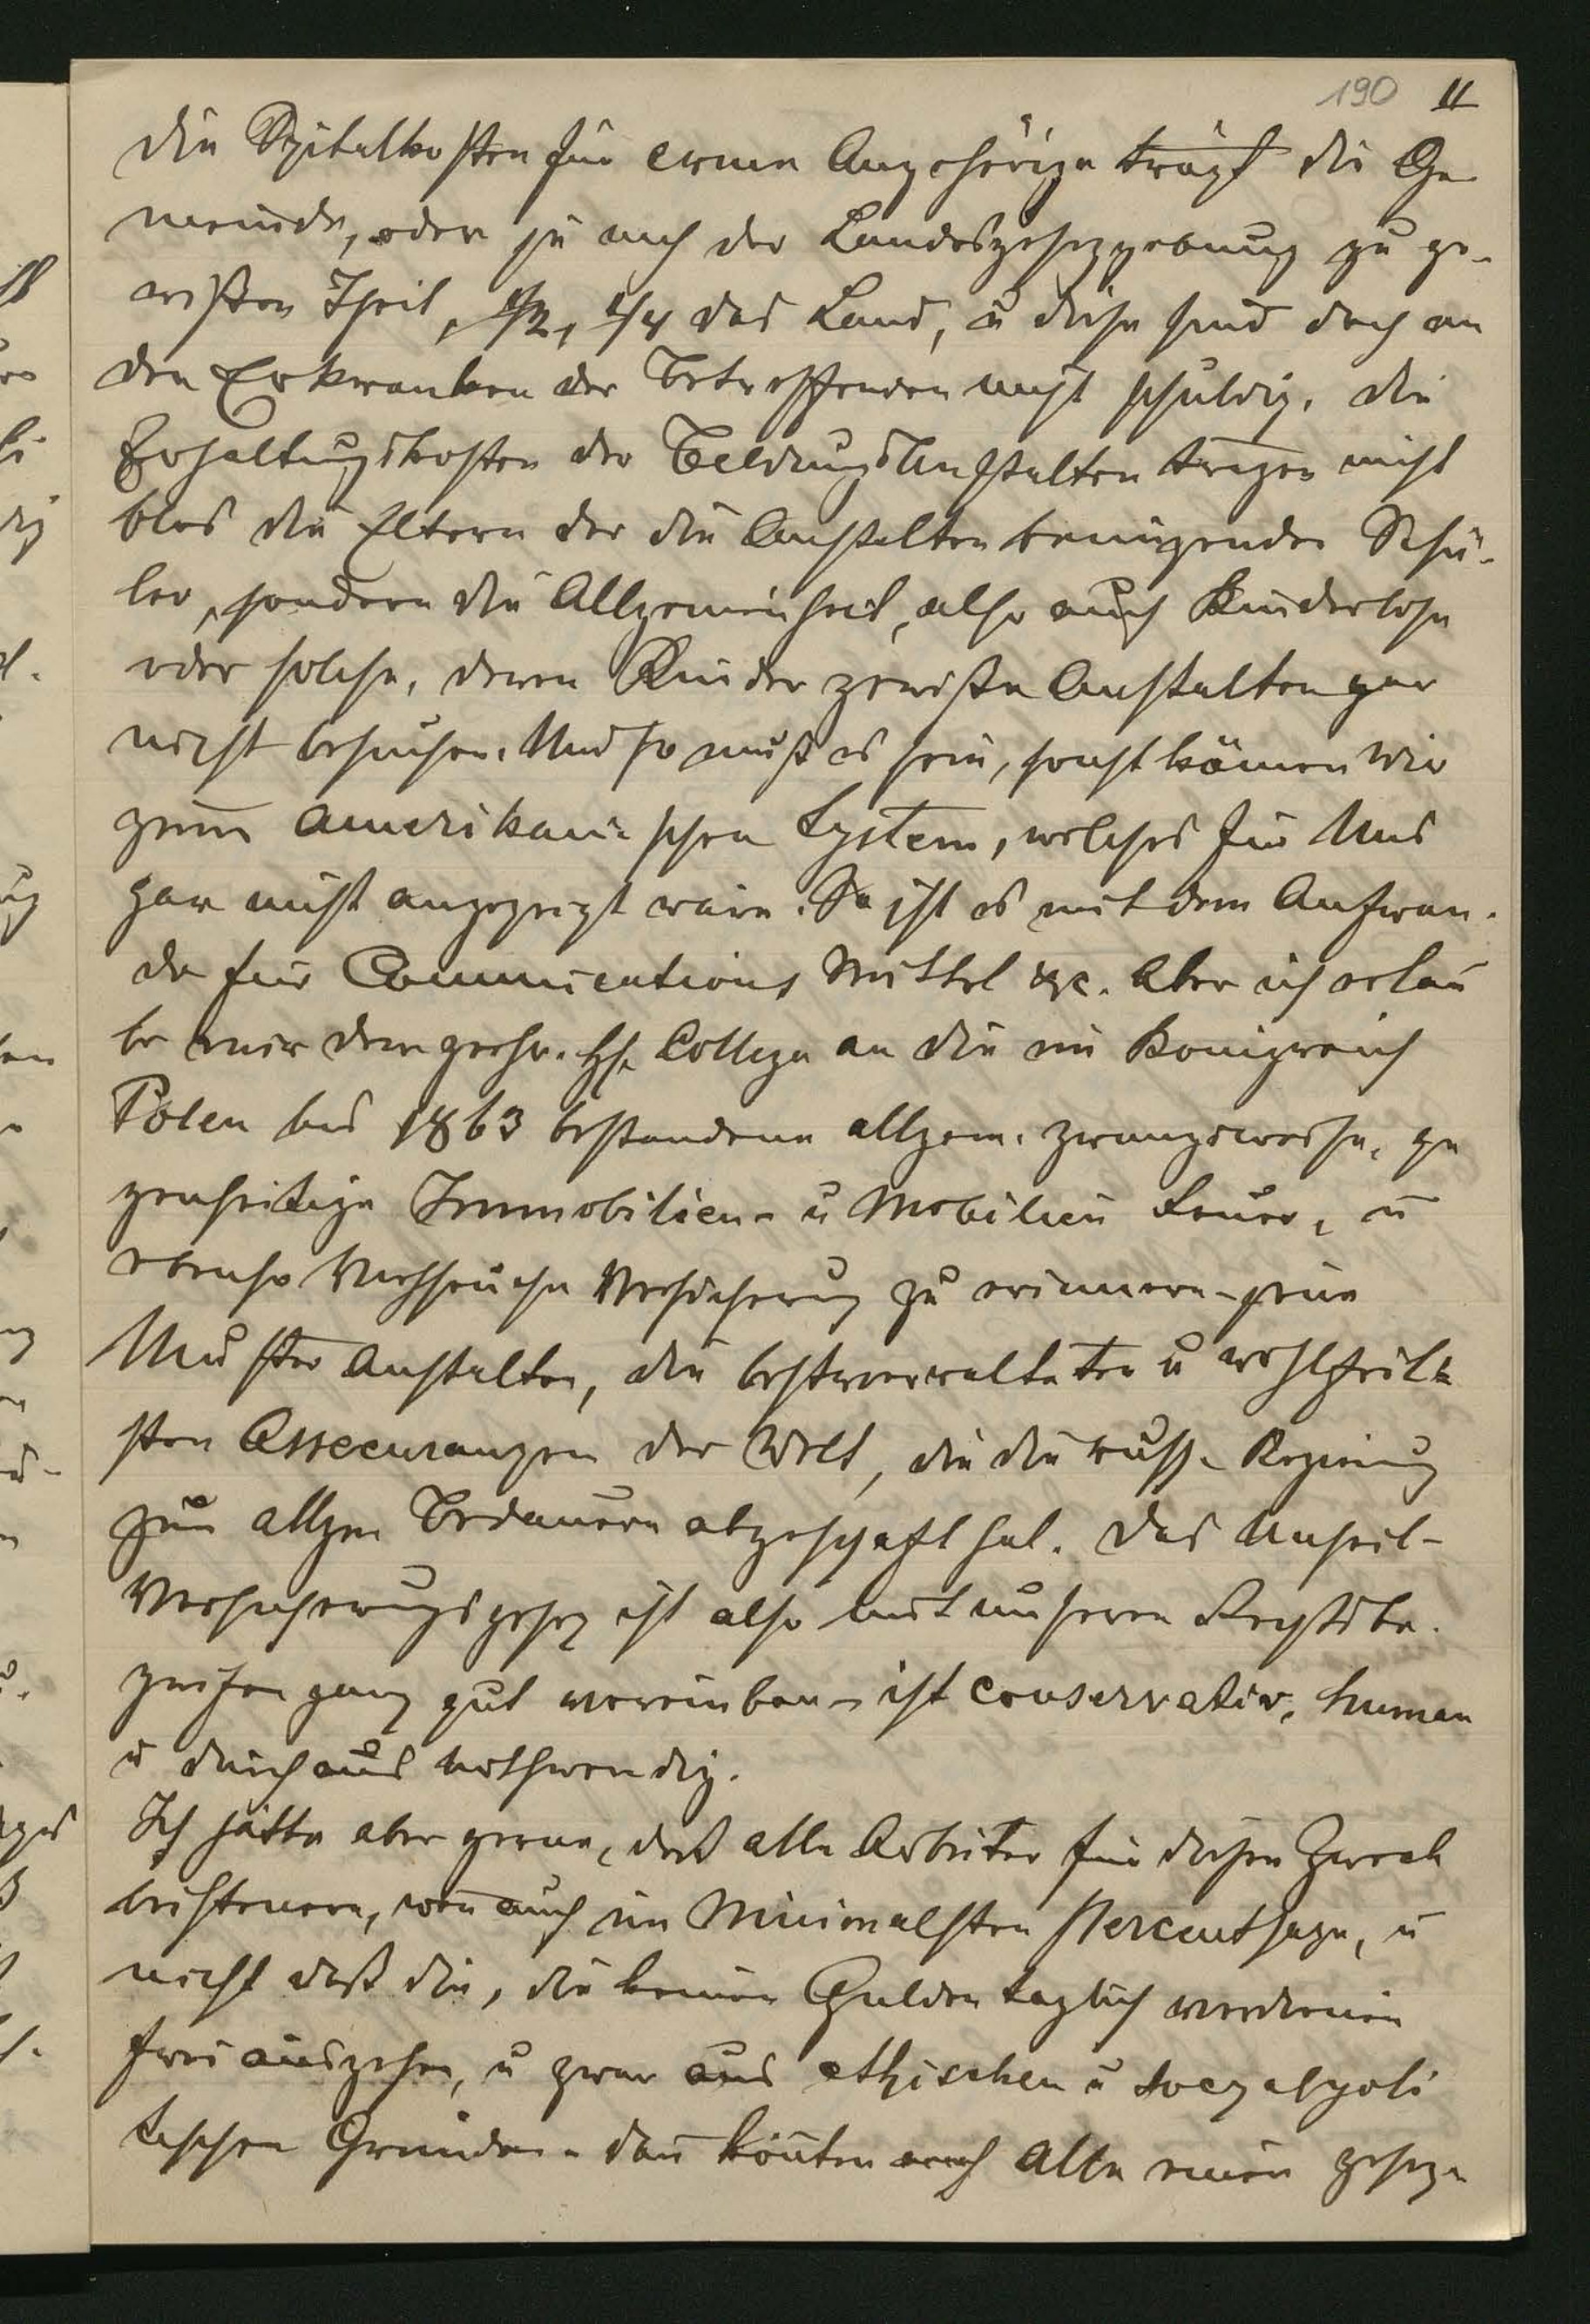 190 11
Die Spitalkosten für arme Angehörige trägt die Ge
meinde, oder je nach der Landesgesezgebung zu ge-
wißen Theil, 1/2, 1/4 das Land, u diese sind doch an
den Erkranken der Betreffenden nicht schuldig. Die
Erhaltungskosten der Bildungsanstalten tragen nicht
blos die Eltern der die Anstalten benüzenden Schü-
ler, sondern die Allgemeinheit, also auch Kinderlose
oder solche, deren Kinder gewiße Anstalten gar
nicht besuchen. Und so muß es sein, sonst kämen wir
zum amerikanischen System, welches für Uns
gar nicht angezeigt wäre. So ist es mit dem Aufwan-
de für Communications Mittel etc. Aber ich erlau
be mir den geehr. H. Collega an die im Königreich
Polen bis 1863 bestandene allgem. zwangsweise, ge
genseitige Immobilien- u Mobilien Feuer, u
ebenso Viehseuche Versicherung zu erinnern - seine
Muster Anstalten, die bestverwalteten u wohlfeil-
sten Assecuranzen der Welt, die die russ. Regierung
zum allgem Bedauern abgeschaft hat. Das Unfall-
Versicherungsgesez ist also mit unseren Rechtsbe-
griffen ganz gut vereinbar - ist conservativ, human
u durchaus nothwendig.
Ich hätte aber gerne, daß alle Arbeiter für diesen Zweck
beisteuern, wen auch im Minimalsten Percentsaze, u
nicht daß die, die keinen Gulden täglich verdienen
frei ausgehen, u zwar aus ethischen u socyalpoli
tischen Gründen - dan könten auch Alle einen gesez-